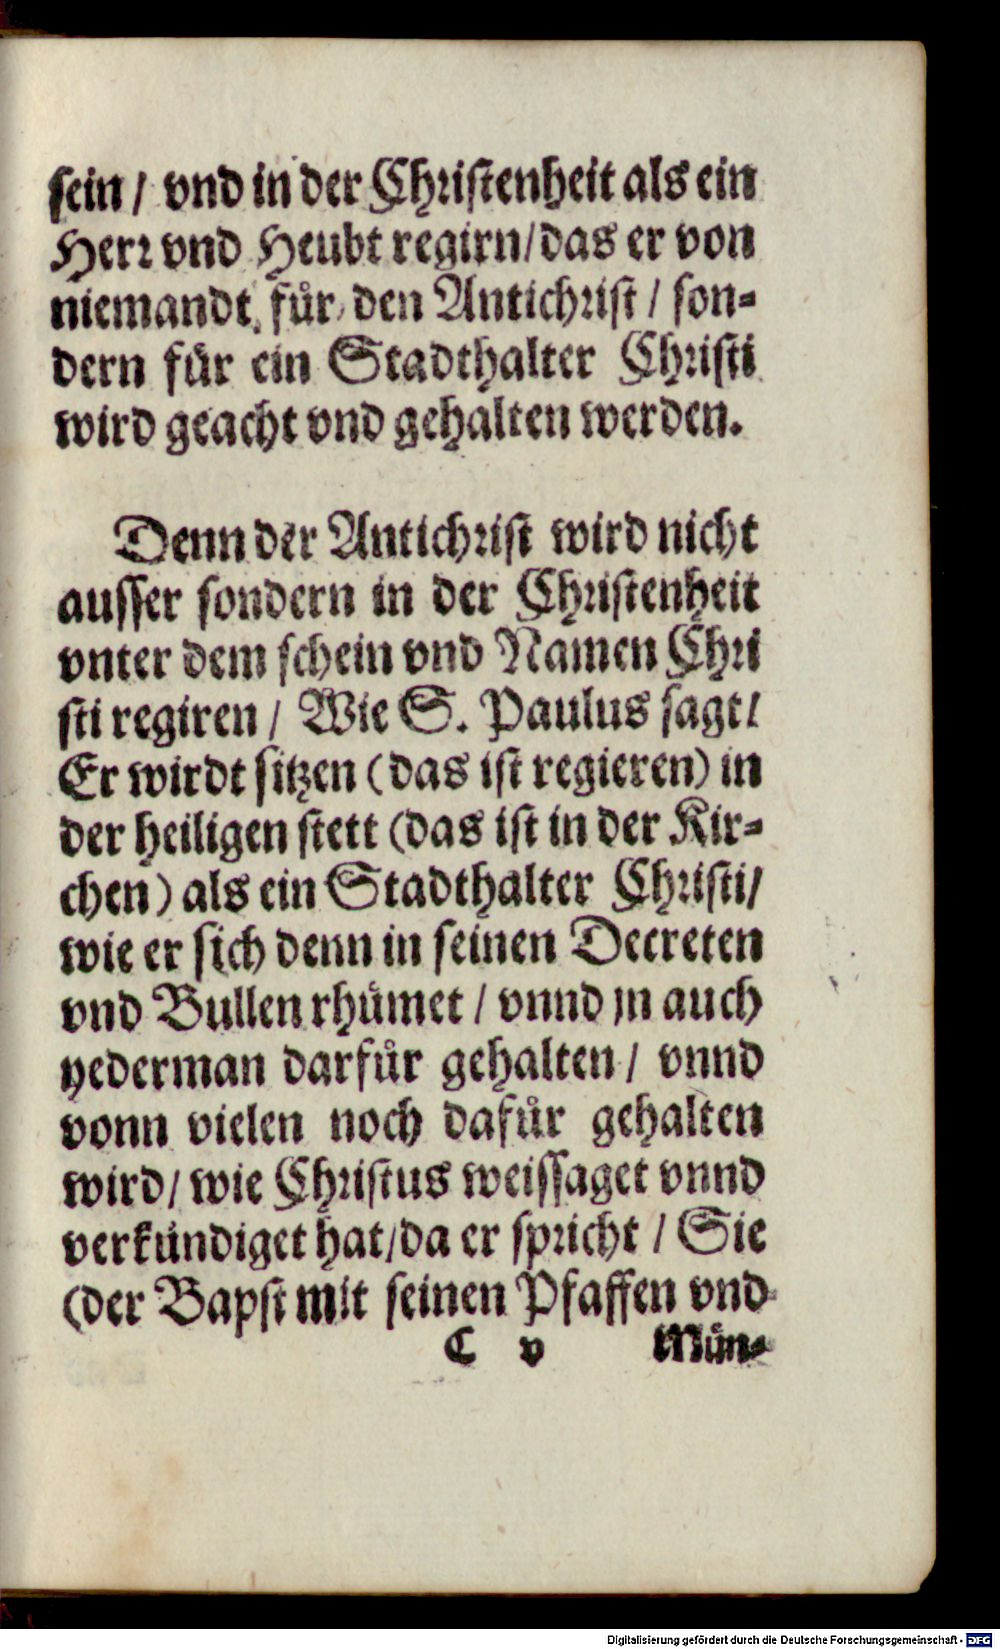 sein / vnd in der Christenheit als ein
Herr vnd Heubt regirn/das er von
niemandt für den Antichrist / son-
dern für ein Stadthalter Christi
wird geacht vnd gehalten werden.
Denn der Antichrist wird nicht
ausser sondern in der Christenheit
vnter dem schein vnd Namen Chri
sti regiren / Wie S. Paulus sagt/
Er wirdt sitzen (das ist regieren) in
der heiligen stett (das ist in der Kir-
chen) als ein Stadthalter Christi/
wie er sich denn in seinen Decreten
vnd Bullen rhümet / vnnd jn auch
yederman darfür gehalten / vnnd
vonn vielen noch dafür gehalten
wird/ wie Christus weissaget vnnd
verkündiget hat/da er spricht / Sie
(der Bapst mit seinen Pfaffen vnd
C v Mün-
Digitalisierung gefördert durch die Deutsche Forschungsgemeinschaft - DFG